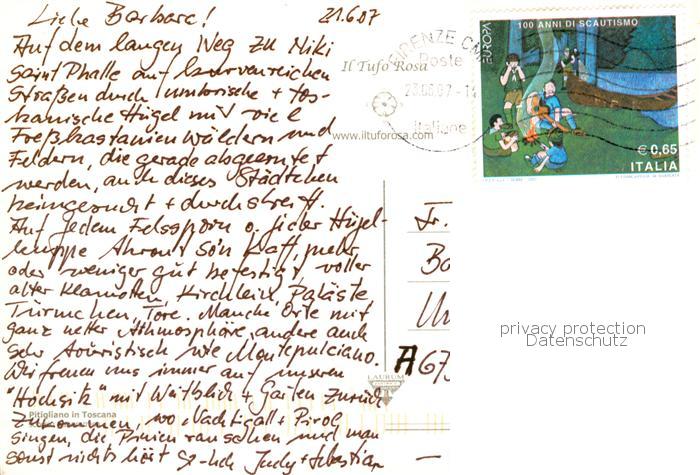 Liebe Barbara! 21.6.07
Auf dem langen Weg zu Niki
Saint Phalle auf kurvenreichen
Straßen durch umbrische + tos-
kanische Hügel mit viel
Eßkastanienwäldern und
Feldern, die gerade abgeerntet
werden, auch dieses Städtchen
heimgesucht + durchstreift.
Auf jedem Felssporn o. jeder Hügel-
kuppe thront so'n Kaff, mehr
oder weniger gut befestigt, voller
alter Klamotten, Kirchlein, Paläste
Türmchen, Tore. Manche Orte mit
ganz netter Athmosphäre, andere auch
sehr touristisch wie Montepulciano.
Wir freuen uns immer auf unseren
"Hochsitz" mit Weitblick + Garten zurück
zukommen, wo Nachtigall + Pirol
singen, die Pinien rauschen und man
sonst nichts hört Judy + Sebastian
Il Tufo Rosa
www.iltuforosa.com
Pitigliano in Toscana
LAURUM
FIRENZE C
Poste
23.06.07 - 1
italiane
EUROPA
100 ANNI DI SCAUTISMO
€ 0,65
ITALIA
Fr.
Ba
A 673
privacy protection
Datenschutz